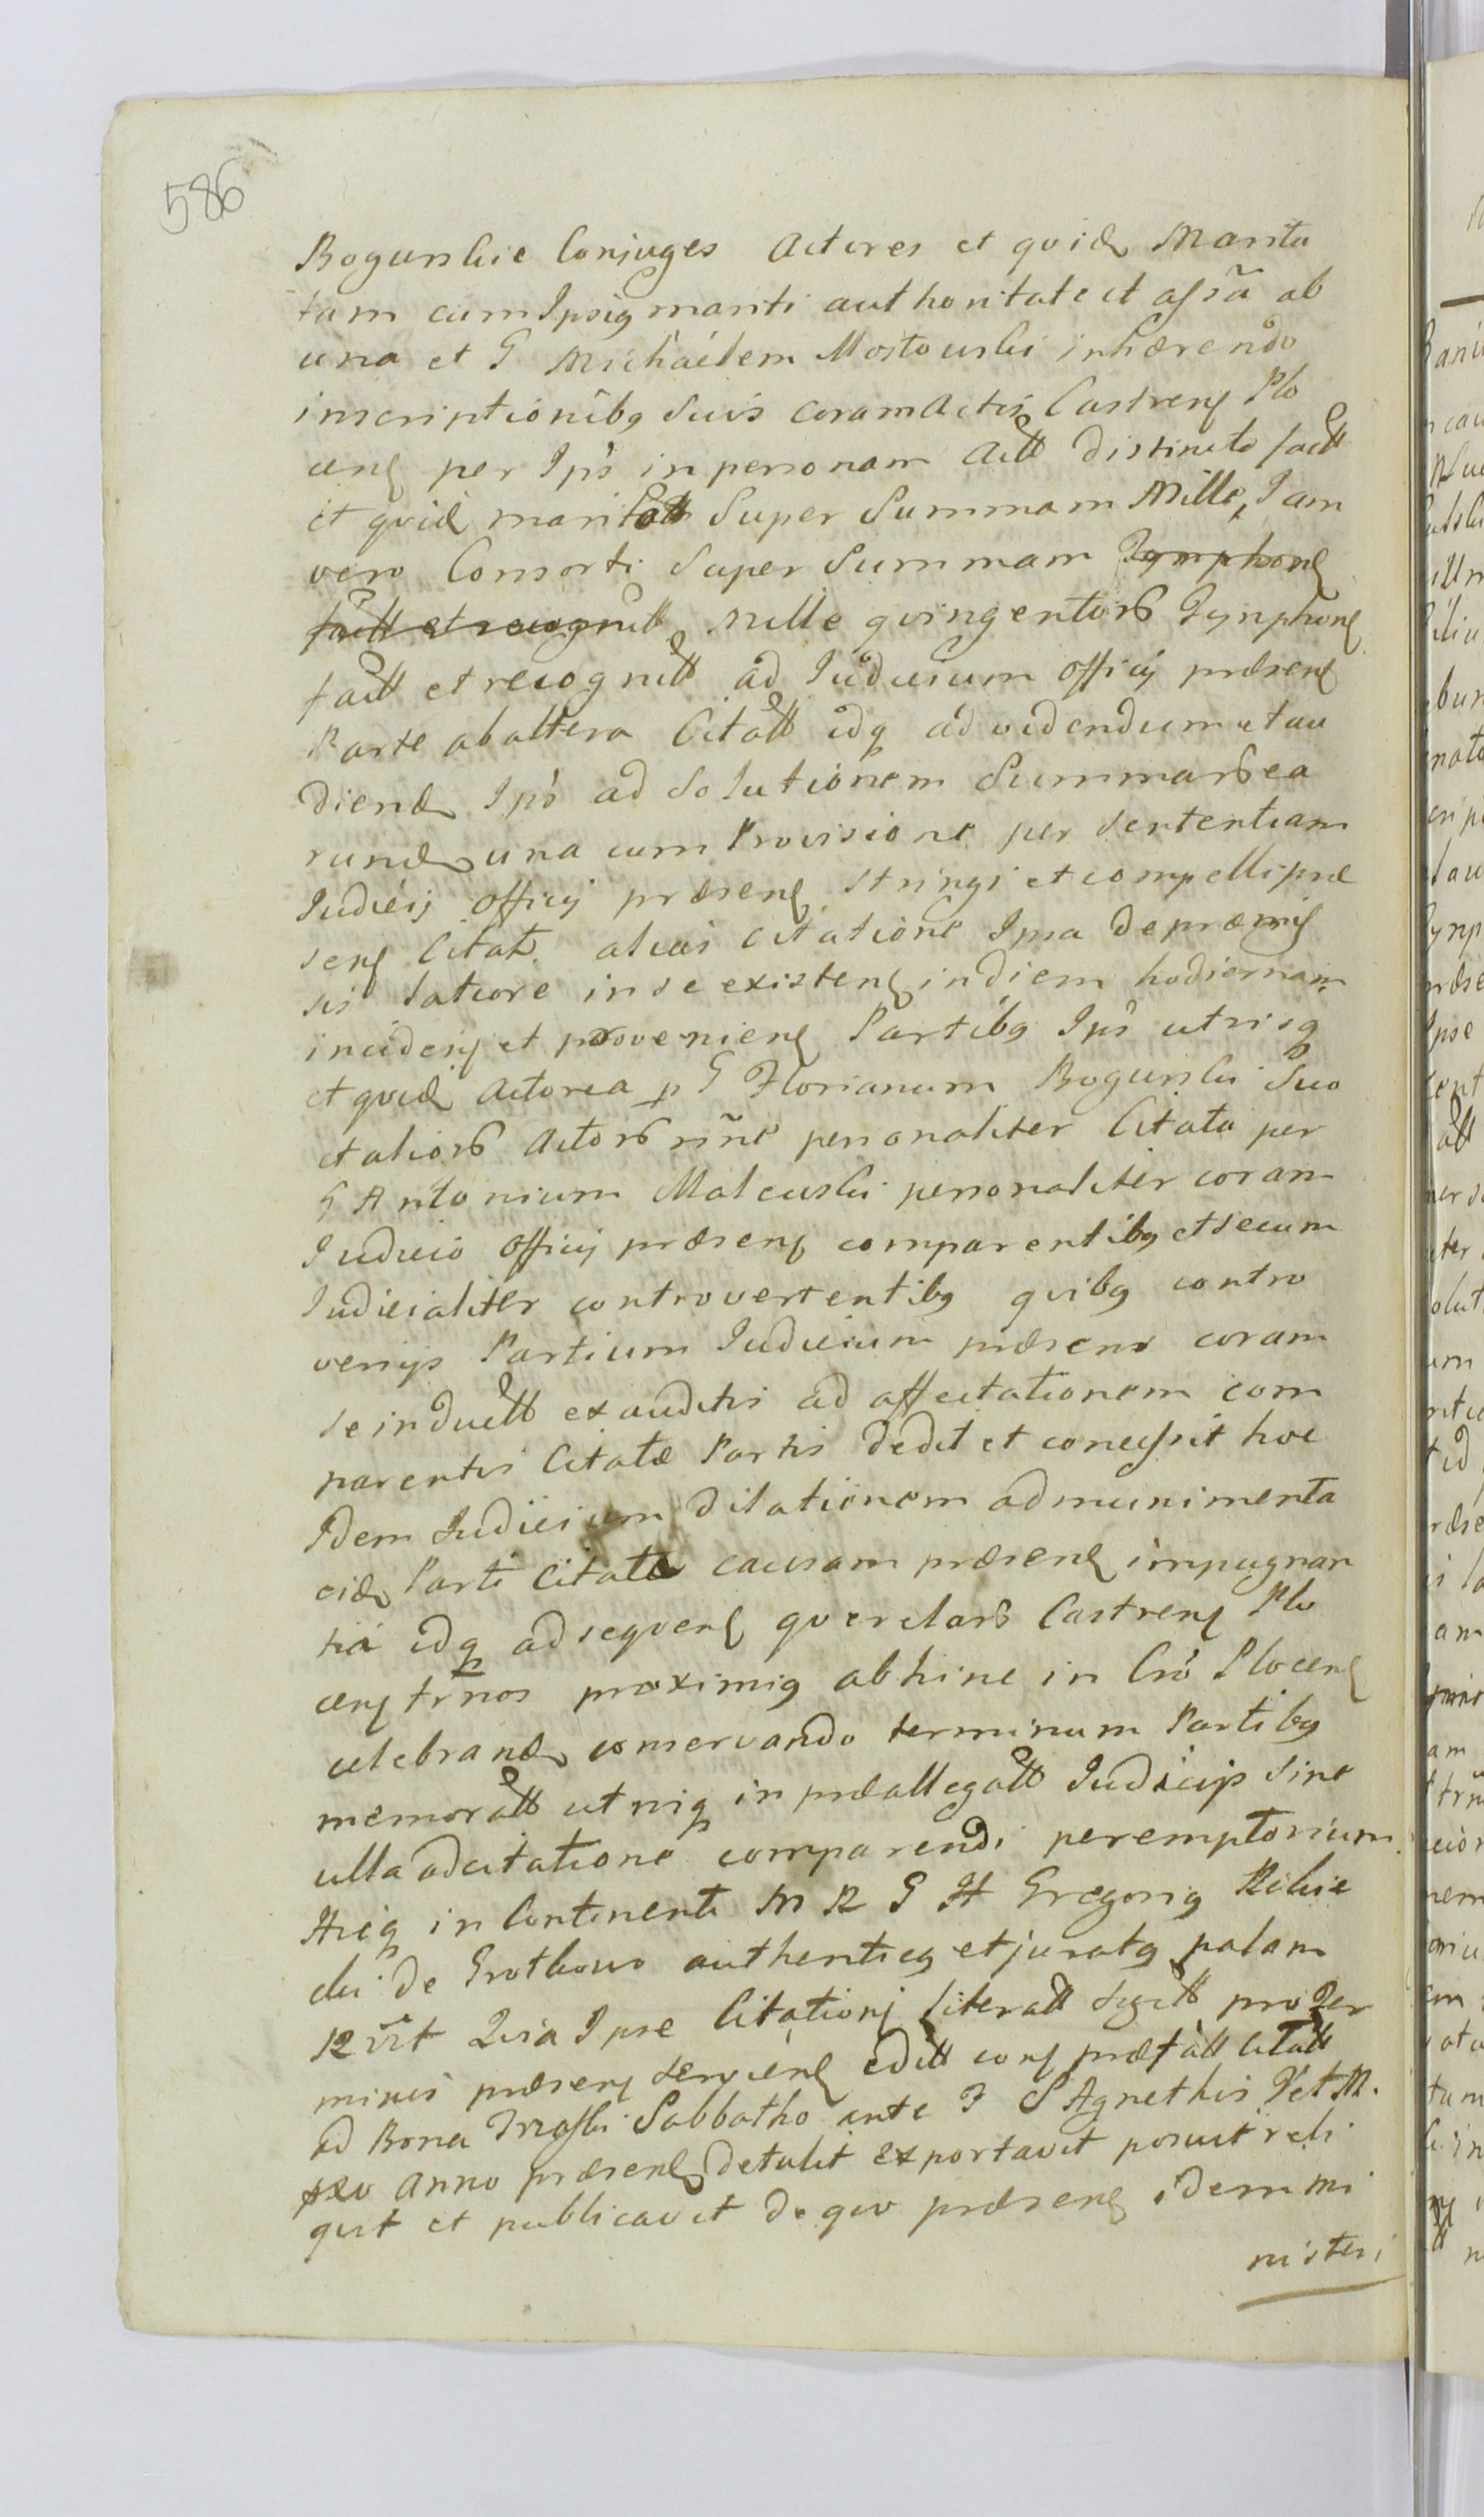 586
Bogunskie Conjuges Actores et quid Marita
tam cum Ipsiq mariti authoritate et assa ab
una et G Michaelem Mostowski inhærendo
inscriptionibq suis coram Actis Castren Plo
cen per Ips in personam Actt distincte factt
et quid maritott Super Summam Mille, Iam
vero Consorti Super Summam Tymphon
factt et recognitt Mille quingentorb Tymphon
factt et recognitt ad Iudicium officij præsen
Parte ab altera Citatt idq ad videndum et au
diend Ips ad solutionem Summarb ea
rund una cum Provisione per sententiam
Iudicij officij præsen stringi et compelli præ
sen Citat. alias citatione Ipsa de præmis
sis latiore in se existen in diem hodiernam
inciden et provenien Partibq Ips utrisq
et quid Actorea p G Florianum Bogunski suo
et aliorb Actorb nñe personaliter Citata per
G Antonium Malewski personaliter coram
Iudicio officij præsen comparentibq et secum
Iudicialiter controvertentibq quibq contro
versijs Partium Iudicium præsens coram
se inductt exauditis ad affectationem com
parentis Citatæ Partis dedit et concessit hoc
Idem Iudicium dilationem ad munimenta
eid Parti Citatæ causam præsen impugnan
tia idq ad sequen querelarb Castren Plo
cen trños proximiq abhinc in Cro Plocen
celebrand conservando terminum Partibq
memoratt utrisq in præallegatt Iudicijs sine
ulla adcitatione comparendi peremptorium
Hicq in Continenti M R G H Gregoriq Kikie
cki de Grotkowo authenticq et juratq palam
R vit Quia Ipse Citationj literatt sigitt pro Ter
minis præsen servien editt con præfatt Citatt
ad Bona Trzaski Sabbatho ante F S Agnethis V et M.
pro Anno præsen detulit exportavit posuit reli
quit et publicavit de quo præsen idem mi
nisteri